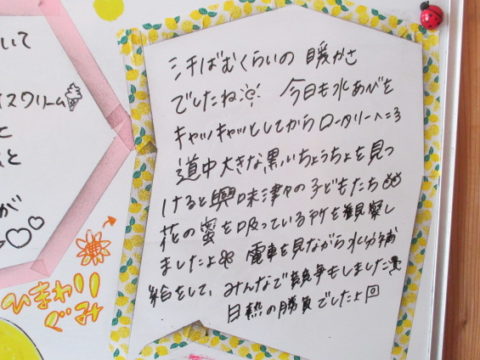 いて
スクリーム
と
と
が
ひまわり
ぐみ
汗ばむくらいの 暖かさ
でしたね 今日も水あびを
キャッキャッとしてからロータリーへ
道中大きな黒いちょうちょを見つ
けると興味津々の子どもたち
花の蜜を吸っている所を観察し
ましたよ 電車を見ながら水分補
給をして、みんなで競争もしました
白熱の勝負でしたよ